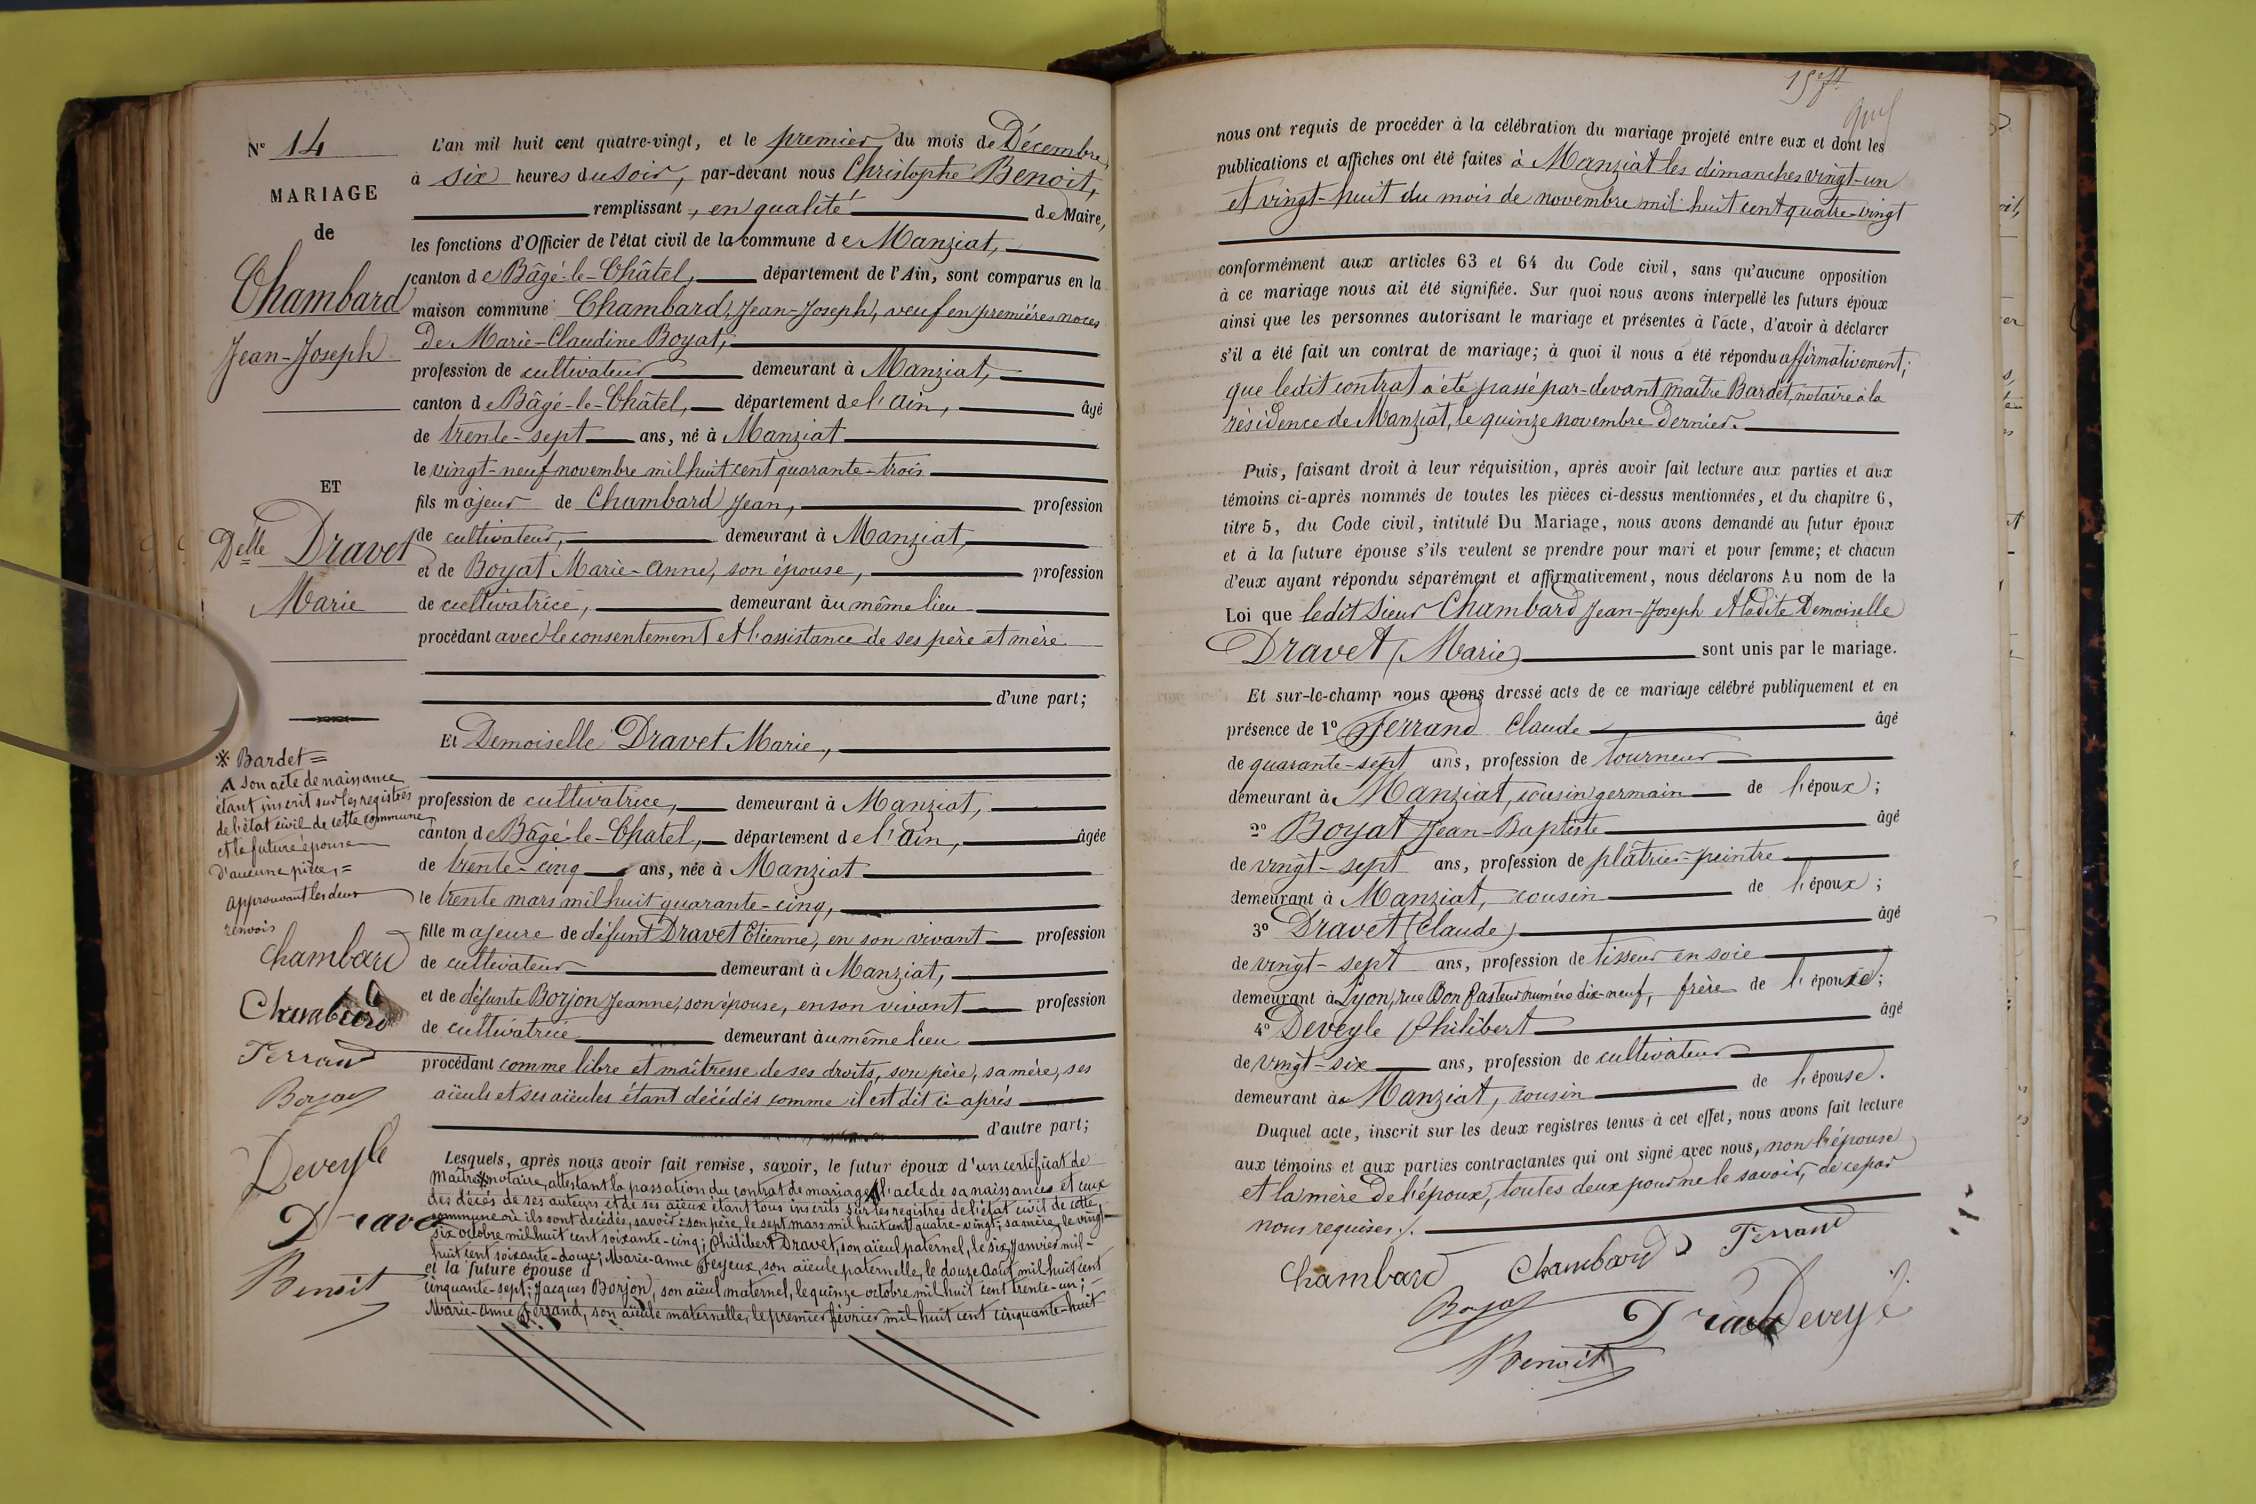 N° 14
MARIAGE
de
Chambard
Jean-Joseph
ET
Delle Dravet
Marie
* Bardet =
A son acte de naissance
étant inscrit sur les registres
de l'état civil de cette commune
et la future épouse
d'aucune pièce, =
Approuvant les deux
renvois
Chambard
Chambard
Ferrand
Boyat
Deveyle
Dravet
Benoit
L'an mil huit cent quatre-vingt, et le premier du mois de Décembre,
à six heures du soir, par-devant nous Christophe Benoit,
remplissant, en qualité de Maire,
les fonctions d'Officier de l'état civil de la commune de Manziat,
canton de Bâgé-le-Châtel, département de l'Ain, sont comparus en la
maison commune Chambard, Jean-Joseph, veuf en premières noces
De Marie-Claudine Boyat,
profession de cultivateur demeurant à Manziat,
canton de Bâgé-le-Châtel, département de l'Ain, âgé
de trente-sept ans, né à Manziat
le vingt-neuf novembre mil huit cent quarante-trois
fils majeur de Chambard Jean, profession
de cultivateur, demeurant à Manziat,
et de Boyat Marie-Anne, son épouse, profession
de cultivatrice, demeurant au même lieu
procédant avec le consentement et l'assistance de ses père et mère
d'une part;
Et Demoiselle Dravet Marie,
profession de cultivatrice, demeurant à Manziat,
canton de Bâgé-le-Chatel, département de l'Ain, âgée
de trente-cinq ans, née à Manziat
le trente mars mil huit quarante-cinq,
fille majeure de défunt Dravet Etienne, en son vivant profession
de cultivateur demeurant à Manziat,
et de défunte Borjon Jeanne, son épouse, en son vivant profession
de cultivatrice demeurant au même lieu
procédant comme libre et maîtresse de ses droits, son père, sa mère, ses
aïeuls et ses aïeules étant décédés comme il est dit ci-après
d'autre part;
Lesquels, après nous avoir fait remise, savoir, le futur époux d'un certificat de
Maître * notaire, attestant la passation du contrat de mariage A l'acte de sa naissance et ceux
des décès de ses auteurs et de ses aïeux étant tous inscrits sur les registres de l'état civil de cette
commune où ils sont décédés, savoir: son père, le sept mars mil huit cent quatre-vingt; sa mère, le vingt-
six octobre mil huit cent soixante-cinq; Philibert Dravet, son aïeul paternel, le six Janvier mil-
huit cent soixante-douze; Marie-Anne Feyeux, son aïeule paternelle, le douze Août mil huit cent
et la future épouse d
cinquante-sept; Jacques Borjon, son aïeul maternel, le quinze octobre mil huit cent trente-un;
Marie-Anne Ferrand, son aïeule maternelle, le premier février mil huit cent cinquante-huit
nous ont requis de procéder à la célébration du mariage projeté entre eux et dont les
publications et affiches ont été faites à Manziat les dimanches vingt-un
et vingt-huit du mois de novembre mil huit cent quatre-vingt
conformément aux articles 63 et 64 du Code civil, sans qu'aucune opposition
à ce mariage nous ait été signifiée. Sur quoi nous avons interpellé les futurs époux
ainsi que les personnes autorisant le mariage et présentes à l'acte, d'avoir à déclarer
s'il a été fait un contrat de mariage; à quoi il nous a été répondu affirmativement;
que ledit contrat a été passé par-devant maître Bardet, notaire à la
résidence de Manziat, le quinze novembre dernier.
Puis, faisant droit à leur réquisition, après avoir fait lecture aux parties et aux
témoins ci-après nommés de toutes les pièces ci-dessus mentionnées, et du chapitre 6,
titre 5, du Code civil, intitulé Du Mariage, nous avons demandé au futur époux
et à la future épouse s'ils veulent se prendre pour mari et pour femme; et chacun
d'eux ayant répondu séparément et affirmativement, nous déclarons Au nom de la
Loi que ledit Sieur Chambard Jean-Joseph et ladite Demoiselle
Dravet (Marie) sont unis par le mariage.
Et sur-le-champ nous avons dressé acte de ce mariage célébré publiquement et en
présence de 1° Ferrand Claude âgé
de quarante-sept ans, profession de tourneur
demeurant à Manziat, cousin germain de l'époux;
2° Boyat Jean-Baptiste âgé
de vingt-sept ans, profession de plâtrier-peintre
demeurant à Manziat, cousin de l'époux;
3° Dravet (Claude) âgé
de vingt-sept ans, profession de tisseur en soie
demeurant à Lyon, rue Bon Pasteur numéro dix-neuf, frère de l'épouse;
4° Deveyle Philibert âgé
de vingt-six ans, profession de cultivateur
demeurant à Manziat, cousin de l'épouse.
Duquel acte, inscrit sur les deux registres tenus à cet effet, nous avons fait lecture
aux témoins et aux parties contractantes qui ont signé avec nous, non l'épouse
et la mère de l'époux, toutes deux pour ne le savoir, de ce par
nous requises /.
Chambard Chambard Ferrand
Boyat Dravet Deveyle
Benoit